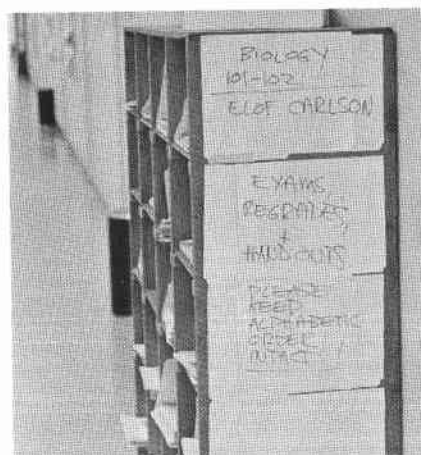 BIOLOGY
101-102
ELOF CARLSON
EXAMS,
REGRADES,
+
HANDOUTS
PLEASE
KEEP
ALPHABETIC
ORDER
INTACT